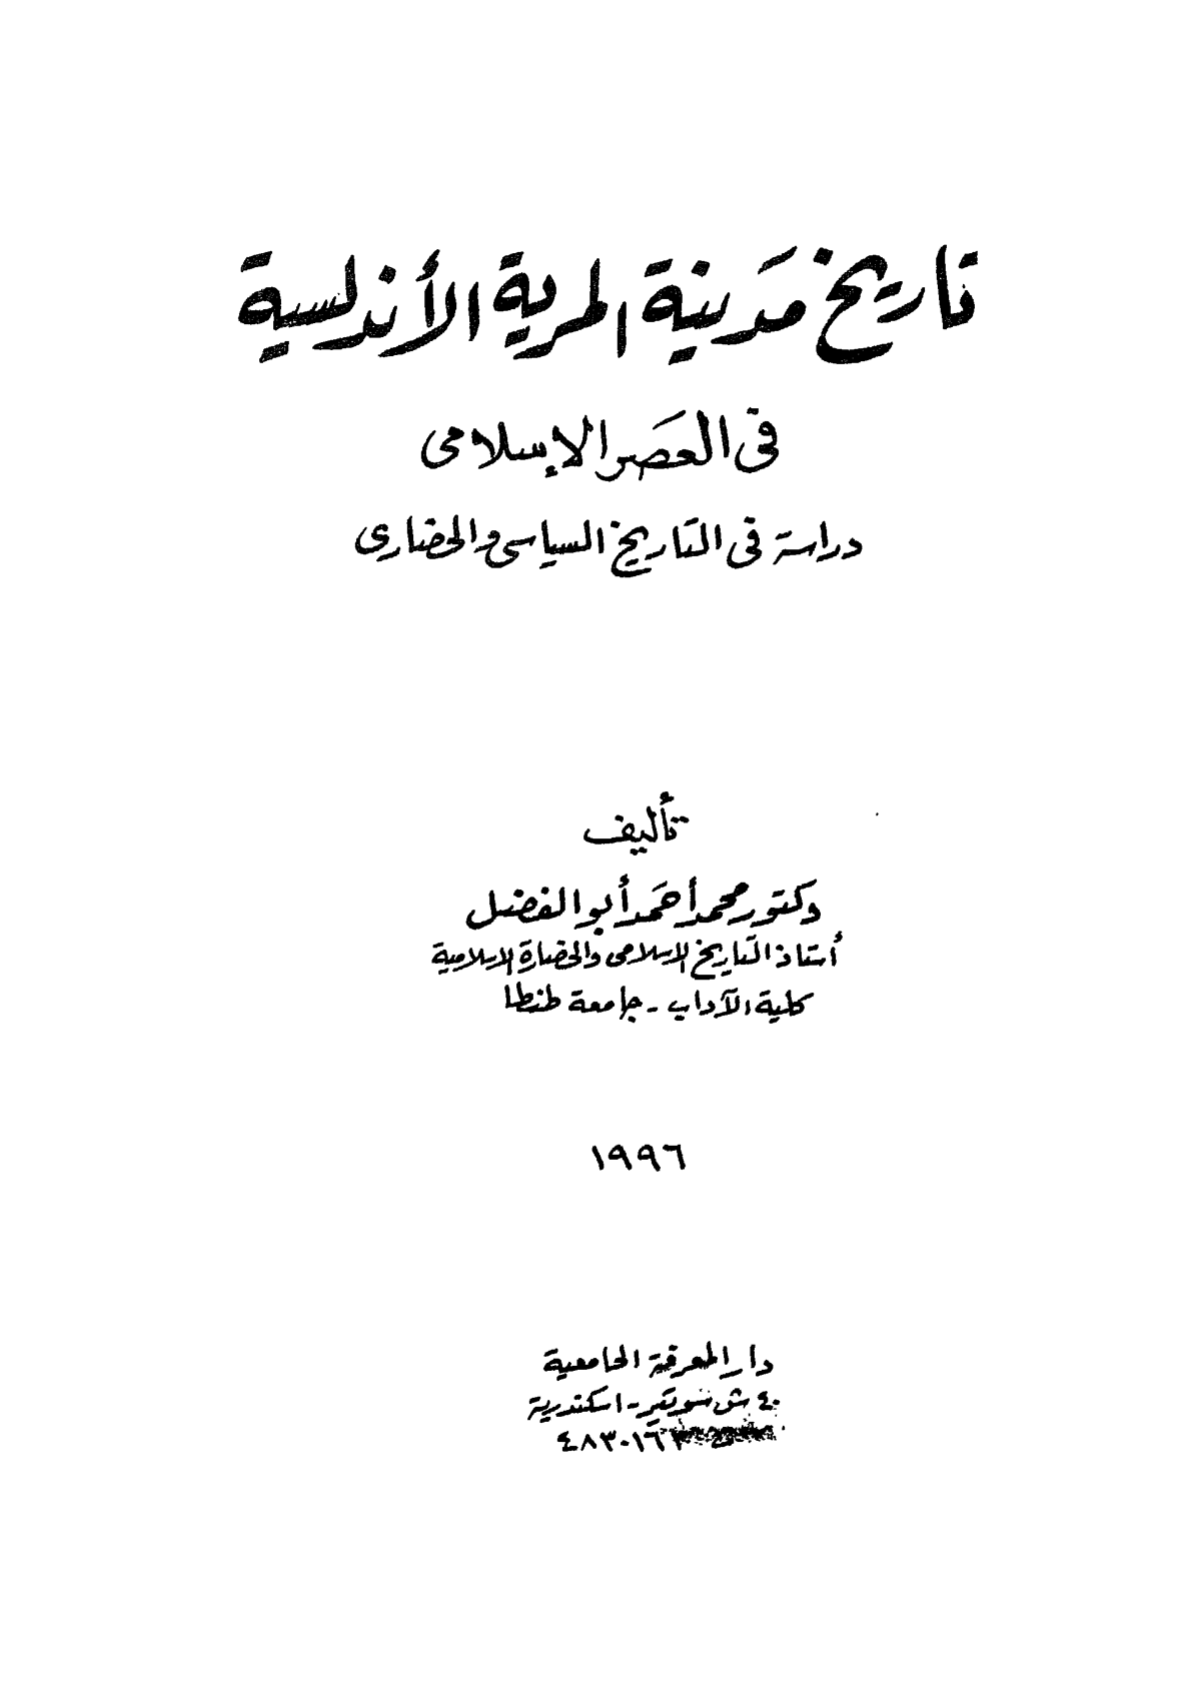 تاريخ مدينة المرية الأندلسية
فى العصر الإسلامى
دراسة فى التاريخ السياسى والحضارى
تأليف
دكتور محمد أحمد أبو الفضل
أستاذ التاريخ الإسلامى والحضارة الإسلامية
كلية الآداب - جامعة طنطا
١٩٩٦
دار المعرفة الجامعية
٤٠ ش سوتير - اسكندرية
٤٨٣٠١٦٣